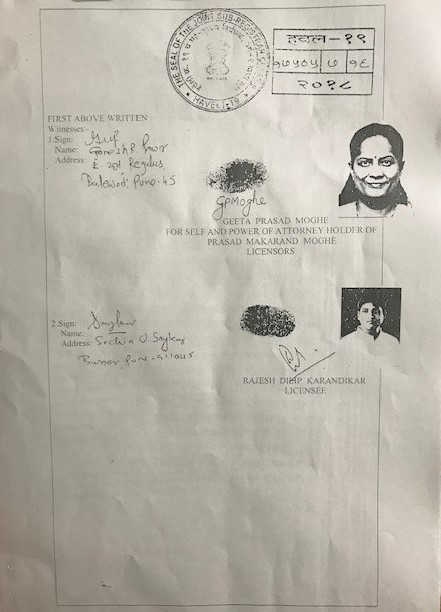 THE SEAL OF THE JOINT SUB-REGISTRAR
HAVELI-19
हवल-१९
१७५०५ ७ १६
२०१८
FIRST ABOVE WRITTEN
Witnesses:-
1.Sign:
Name: Ganesh R.
Address: E. 201 Regulus
Pune-45
GPMoghe
GEETA PRASAD MOGHE
FOR SELF AND POWER OF ATTORNEY HOLDER OF
PRASAD MAKARAND MOGHE
LICENSORS
2.Sign:
Name:
Address: Sachin U.
Pune-411045
RAJESH DILIP KARANDIKAR
LICENSEE